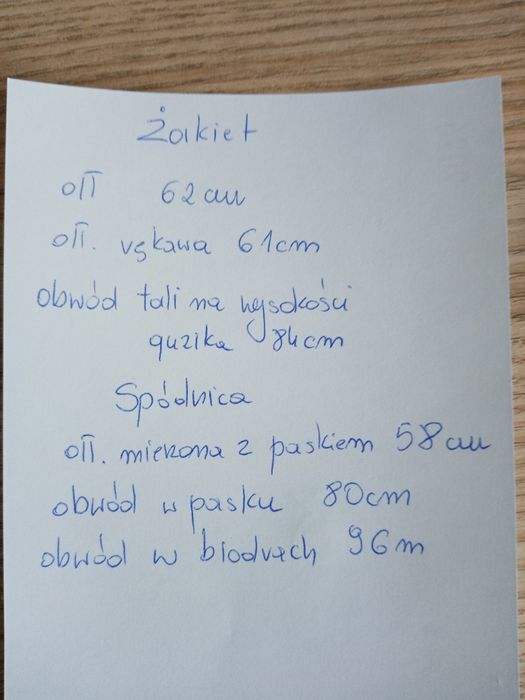 Żakiet
dłł 62cm
dłł. rękawa 61cm
obwód tali na wysokości
guzika 84cm
Spódnica
dłł. mierzona z paskiem 58cm
obwód w pasku 80cm
obwód w biodrach 96m